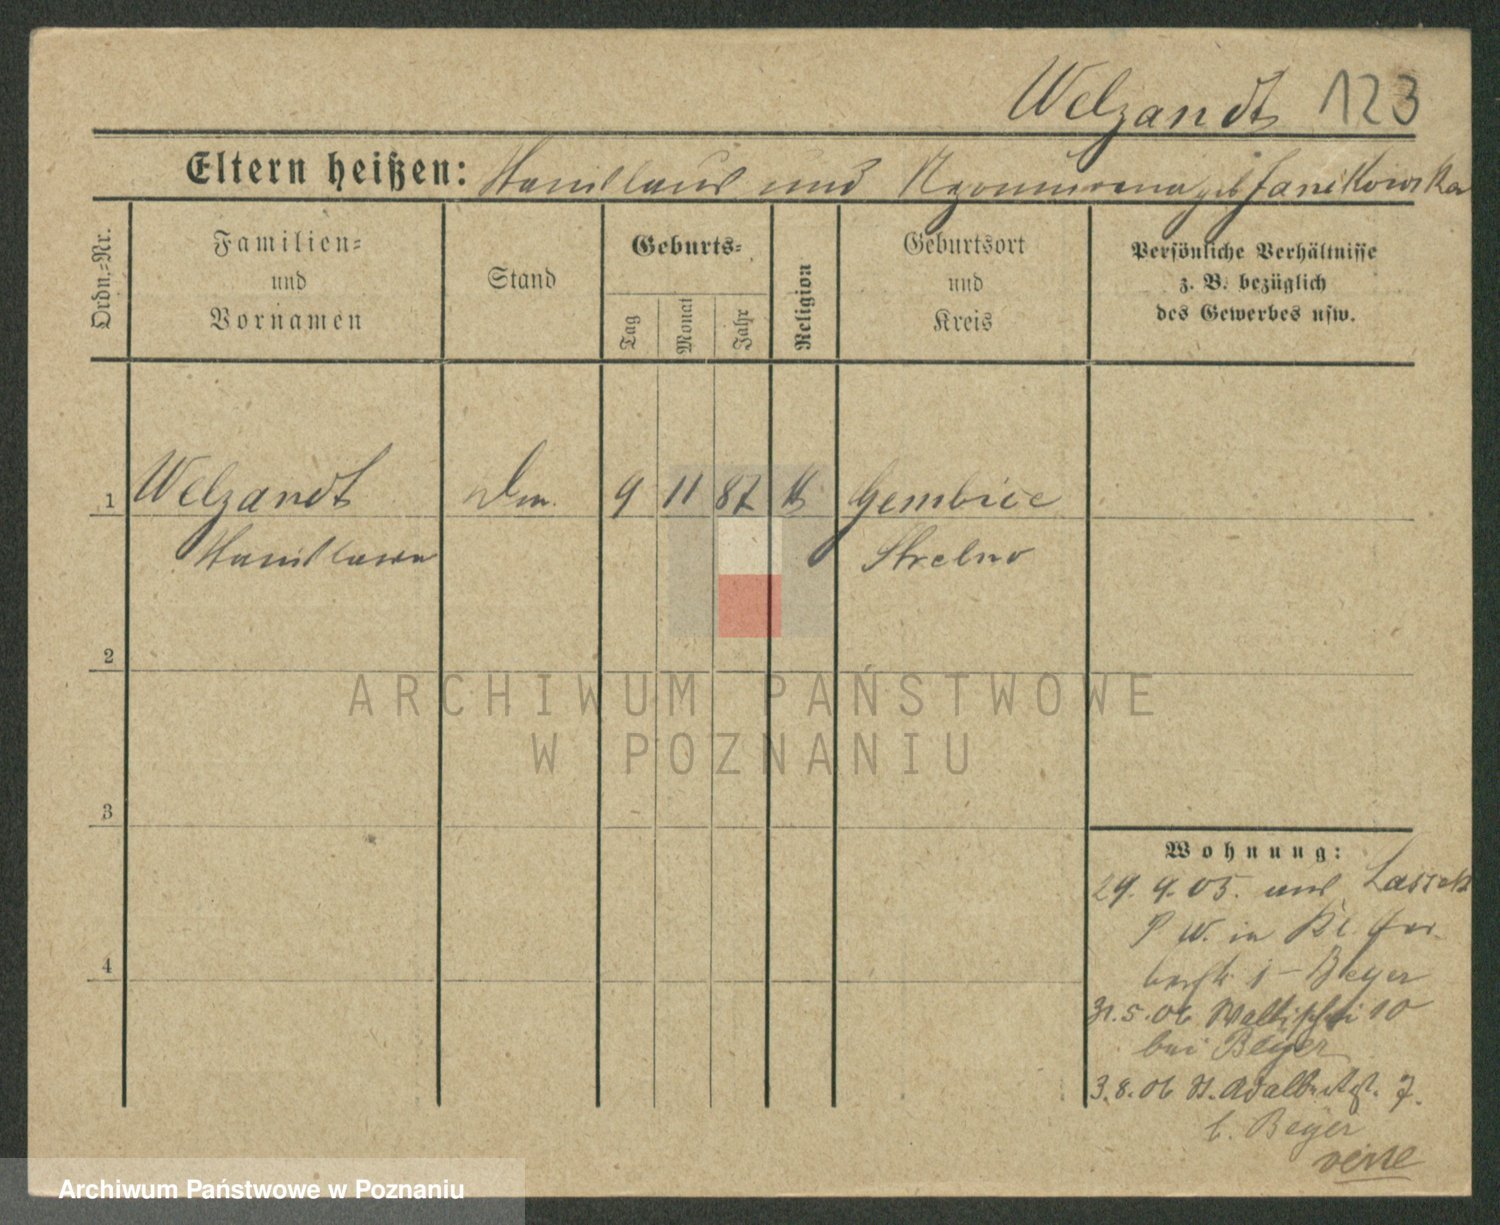 Welzandt 123
Eltern heißen: Stanislaus und geb Janikowska
Ordn.=Nr.
Familien=
und
Vornamen
Stand
Geburts=
Tag
Monat
Jahr
Religion
Geburtsort
und
Kreis
Persönliche Verhältnisse
z. B. bezüglich
des Gewerbes usw.
1 Welzandt Dm. 9 11 87 K Gembice
Stanislawa Strelno
2
ARCHIWUM PAŃSTWOWE
W POZNANIU
3
Wohnung:
29. 9. 05. aus Lassek
P W. in Kl. Ger-
4
berstr. j - Beyer
31.5.06 Wallischei 10
bei Beyer
3.8.06 St. Adalbertstr. 7.
b. Beyer
verte
Archiwum Państwowe w Poznaniu